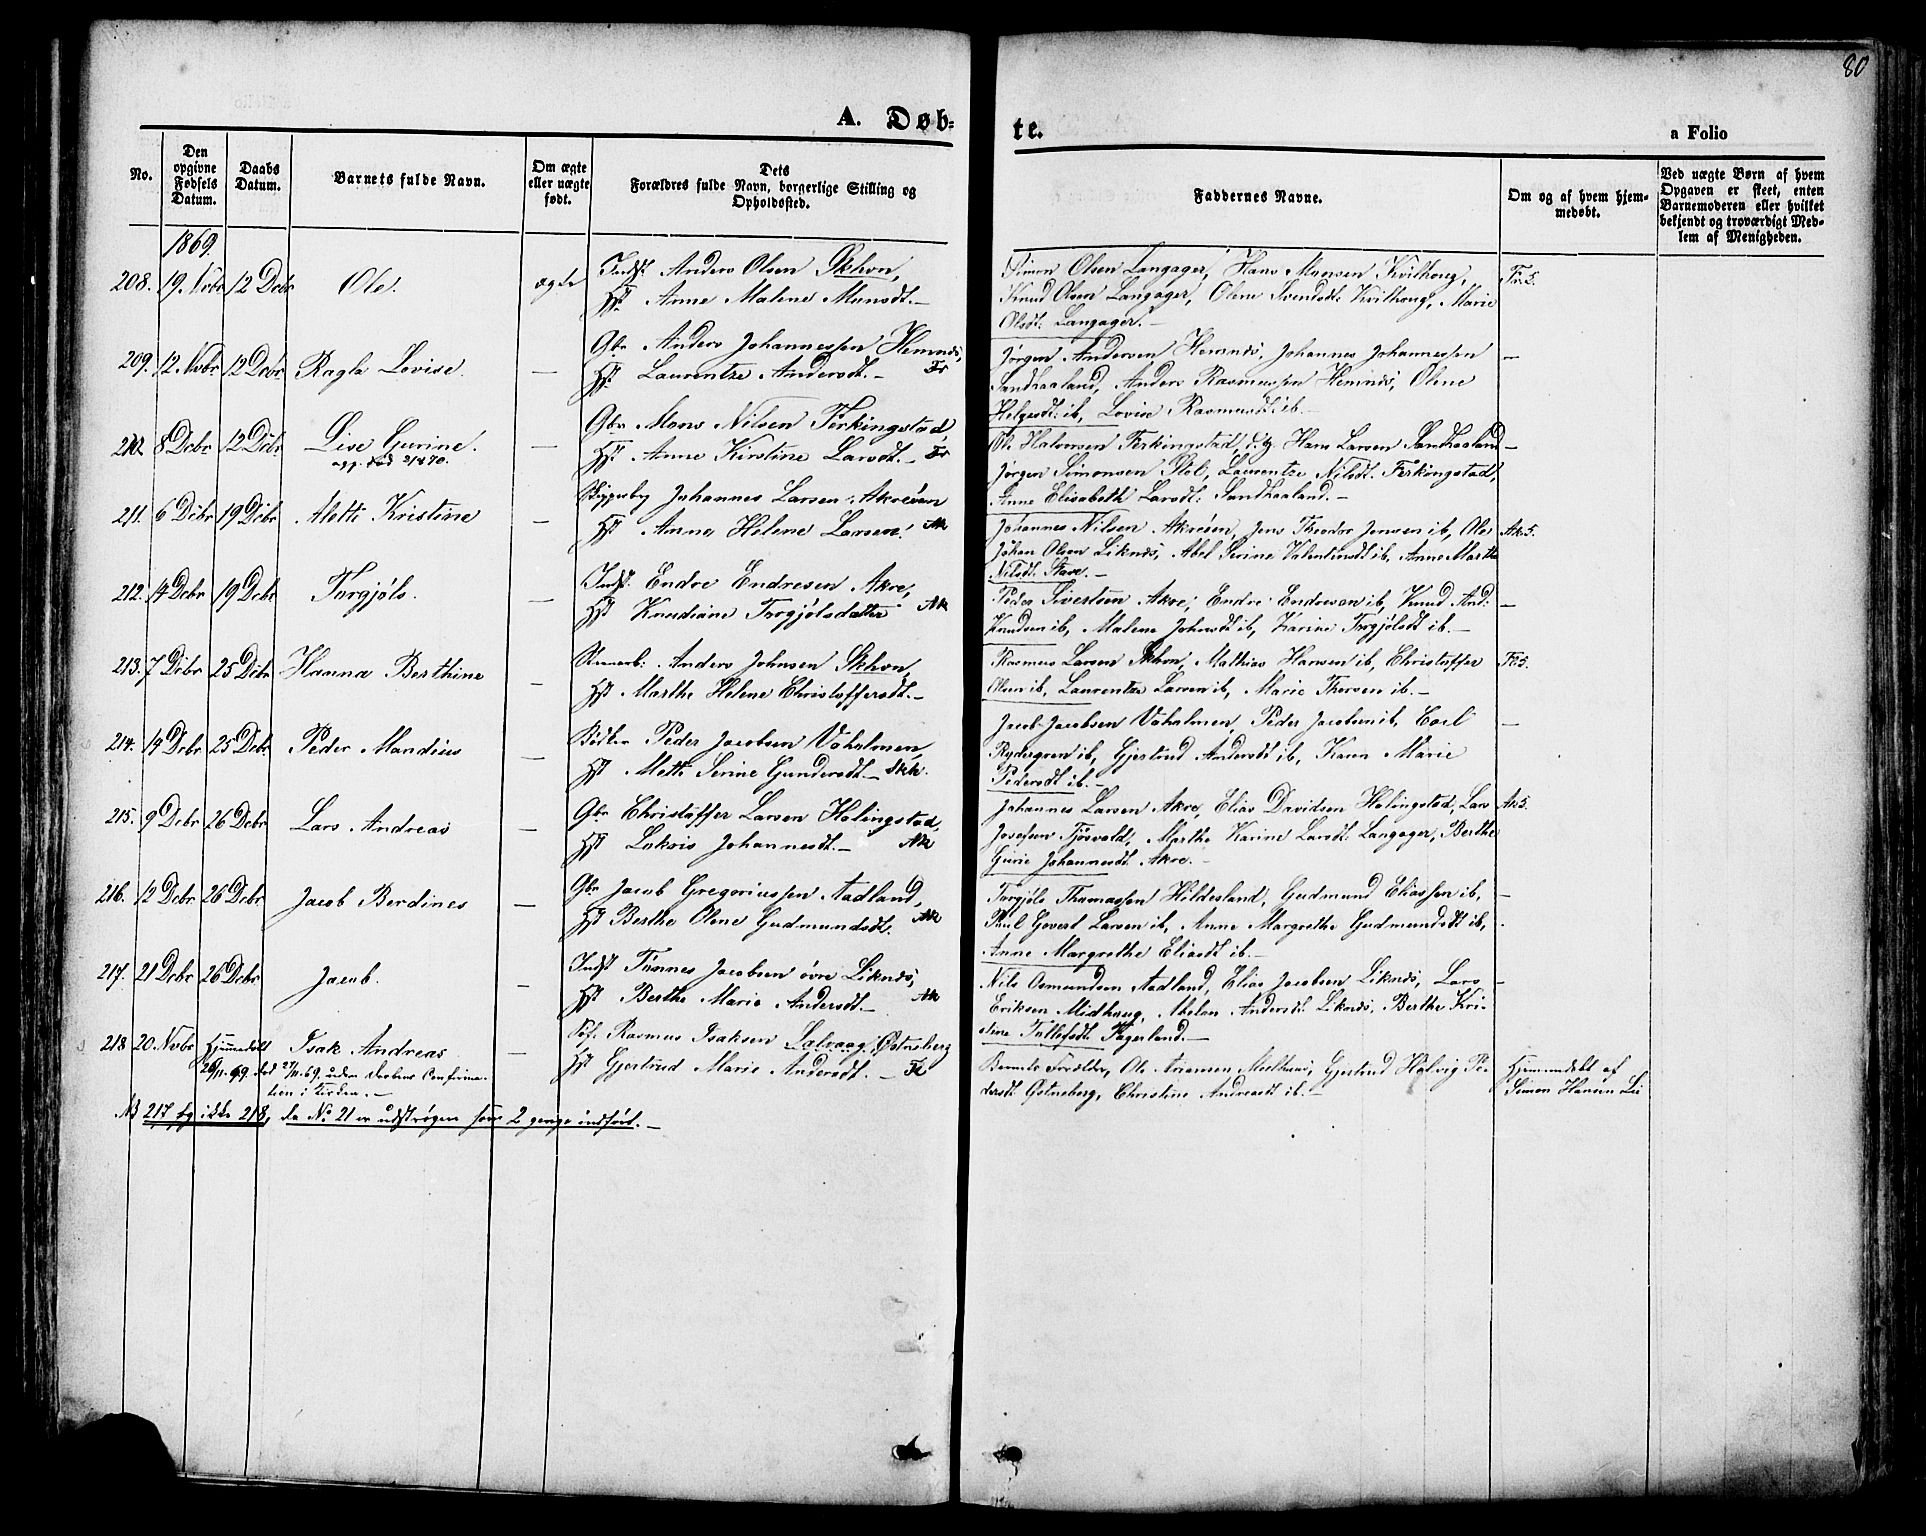 80
A. Døb-
te.
a Folio
No.
Den opgivne Fødsels Datum.
Daabs Datum.
Barnets fulde Navn.
Om ægte eller uægte født.
Dets Forældres fulde Navn, borgerlige Stilling og Opholdssted.
Faddernes Navne.
Om og af hvem hjemmedøbt.
Ved uægte Børn af hvem Opgaven er skeet, enten Barnemoderen eller hvilket bekjendt og troværdigt Medlem af Menigheden.
1869.
208. 19. Novbr 12 Decbr Ole. ægte Indst. Anders Olsen Skhvn,
Hst. Anne Malene Monsdt. —
Simon Olsen Langager, Hans Monsen Kvilhoug,
Knud Olsen Langager, Olene Svendsdt. Kvilhoug, Marie
Olsdt. Langager. —
209. 12. Novbr 12 Decbr Ragla Lovise. — Gbr Anders Johannessen Hemnæs,
Hst. Laurentze Andersdt. — Fr
Jørgen Andersen Hemnæs, Johannes Johannessen —
Sandhaaland, Anders Rasmussen Hemnæs, Olene
Helgesdt. ib, Lovise Rasmusdt. ib. —
210. 8 Decbr 12 Decbr Live Gurine. — Gbr Mons Nilsen Ferkingstad,
Hst. Anne Kirstine Larsdt. — Fr
Ole Halvorsen Ferkingstad, Hans Larsen Sandhaaland —
Jørgen Simonsen Stol, Laurentze Nilsdt. Ferkingstad,
Anne Elisabeth Larsdt. Sandhaaland. —
211. 6 Decbr 19 Decbr Alette Kristine — Johannes Larsen Akreøen
Hst Anna Helene Larsen. Ak
Johannes Nilsen Akreøen, Jens Theodor Jensen ib, Ole Ak. 5.
Johan Olsen Liknæs, Abel Serine Valentinsdt ib, Anne Marthe
Nilsdt. Stave. —
212. 14 Decbr 19 Decbr Torgjøls. — Indst. Endre Endresen Akre,
Hst Knudiane Torgjølsdatter Ak
Peder Sivertsen Akre, Endre Endresen ib, Knud And: —
Knudsen ib, Malene Johnsdt ib, Karine Torgjølsdt ib. —
213. 7 Decbr 25 Decbr Hanna Berthine — Anders Johnsen Skhvn,
Hst Marthe Helene Christoffersdt. —
Rasmus Larsen Skhvn, Mathias Hansen ib, Christoffer
Olsen ib, Laurentze Larsen ib, Marie Thorsen ib. —
214. 19 Decbr 25 Decbr Peder Mandius — Peder Jacobsen Vaholmen,
Hst Mette Serine Gundersdt. — Skh.
Jacob Jacobsen Vaholmen, Peder Jacobsen ib, Carl —
Rydergren ib, Gjertrud Andersdt ib, Karen Marie
Pedersdt ib. —
215. 9 Decbr 26 Decbr Lars Andreas — Gbr Christoffer Larsen Halingstad,
Hst Lukris Johannesdt. — Ak
Johannes Larsen Akre, Elias Davidsen Halingstad, Lars Ak. 5.
Josefsen Tjøsvold, Marthe Karine Larsdt. Langager, Berthe
Gurie Johannesdt. Akre. —
216. 12 Decbr 26 Decbr Jacob Berdines — Gbr Jacob Gregoriussen Aadland,
Hst Berthe Olene Gudmundsdt. Ak
Torgjøls Thomassen Hildesland, Gudmund Eliassen ib, —
Poul Govert Larsen ib, Anne Margrethe Gudmundsdt ib,
Anne Margrethe Eliasdt ib. —
217. 21 Decbr 26 Decbr Jacob. — Indst Tønnes Jacobsen øvre Liknæs,
Hst Berthe Marie Andersdt. — Ak
Nils Osmundsen Aadland, Elias Jacobsen Liknæs, Lars —
Eriksen Midhaug, Malene Andersdt. Liknæs, Berthe Kri-
stine Tollefsdt. Fagerland. —
218 20. Novbr Hjemmedøbt Isak Andreas — Rasmus Isaksen Salvaag, Østnsberg
Hst Gjertrud Marie Andersdt. —
død 27/11 69, uden Daabens Confirma-
tion i Kirken. —
Barnets Forældre, Ole Aronsen Melhuus, Gjertrud Helvig Pe-
dersdt Østneberg, Christine Andreasdt ib. —
Hjemmedøbt af
Simon Hansen
NB 217 og ikke 218, da No 21 er udstrøgen som 2 gange indført. —